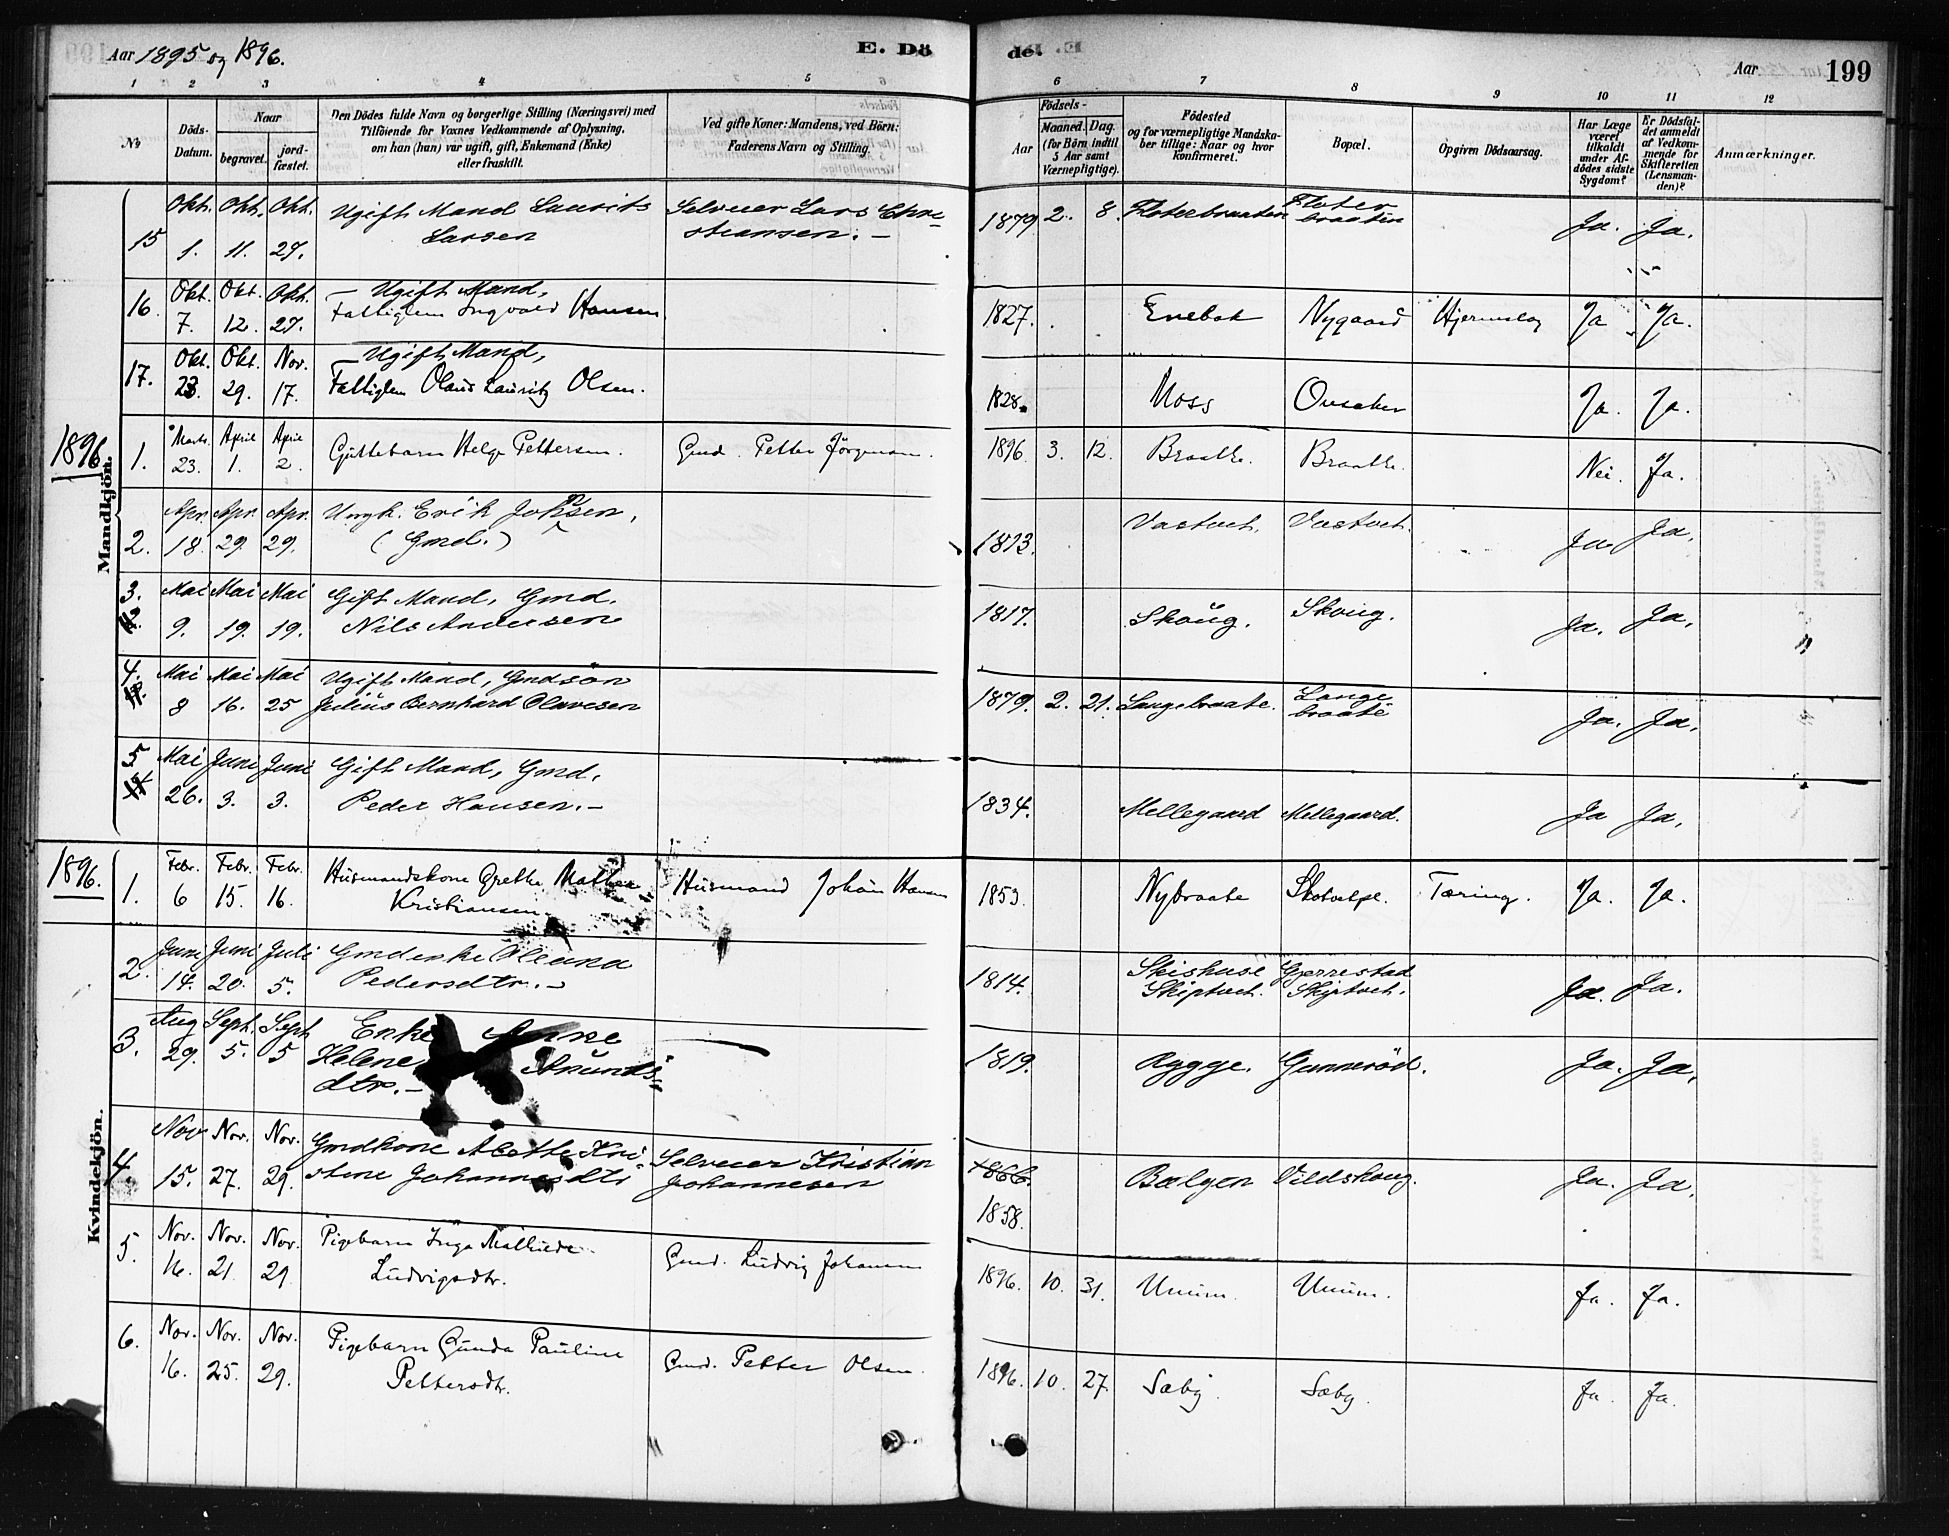 Aar 1895 og 1896.
E. Dö
de.
Aar
199
1 2 3 4 5 6 7 8 9 10 11 12
No
Döds-Datum.
Naar
begravet.
jord-fæstet.
Den Dödes fulde Navn og borgerlige Stilling (Næringsvei) med
Tilföiende for Voxnes Vedkommende af Oplysning,
om han (hun) var ugift, gift, Enkemand (Enke)
eller fraskilt.
Ved gifte Koner: Mandens, ved Börn:
Faderens Navn og Stilling.
Födsels-
Aar
Maaned. Dag.
(for Börn indtil
5 Aar samt
Værnepligtige).
Födested
og for værnepligtige Mandska-
ber tillige: Naar og hvor
konfirmeret.
Bopæl.
Opgiven Dödsaarsag.
Har Læge
været
tilkaldt
under Af-
dödes sidste
Sygdom?
Er Dödsfal-
det anmeldt
af Vedkom-
mende for
Skifteretten
(Lensman-
den)?
Anmærkninger.
15 Okt. 1. Okt. 11. Okt. 27. Ugift Mand Laurits
Larsen
Selveier Lars Chri-
stiansen.-
1879 2. 8. Floterbraaten Floter
braaten
Ja. Ja.
16. Okt. 7. Okt. 12. Okt. 27. Ugift Mand,
Fattiglem Ingvald Hansen
1827. Enebak Nygaard Hjerneslag Ja Ja.
17. Okt. 23. Okt. 29. Nov. 17. Ugift Mand,
Fattiglem Olaus Lauritz Olsen.
1828. Moss Ja. Ja.
1896
Mandkjön.
1. Marts. 23. April 1. April 2. Guttebarn Helge Pettersen. Gmd. Petter Jörgensen.
1896 3. 12. Braatte. Braatte. Nei. Ja.
2. Apr. 18. Apr. 29. Apr. 29. Ungk. Erik Johnsen,
(Gmd.)
1813. Vastvet. Vastvet. Ja. Ja.
3. Mai 9. Mai 19. Mai 19. Gift Mand, Gmd.
Nils Andersen
1817. Skoug. Skoug. Ja. Ja.
4. Mai 8 Mai 16. Mai 25 Ugift Mand, Gmdsön
Julius Bernhard Olavesen
1879. 2. 21. Langebraate. Lange
braate
Ja. Ja.
5 Mai 26. Juni 3. Juni 3. Gift Mand, Gmd.
Peder Hansen.-
1834. Mellegaard Mellegaard. Ja Ja.
1896.
Kvindekjön.
1. Febr. 6 Febr. 15. Febr. 16. Husmandskone Grethe Mathea
Kristiansen
Husmand Johan Hansen
1853. Nybraate Tæring. Ja. Ja.
2. Juni 14. Juni 20. Juli 5. Gmdenke Oleana
Pedersdtr.-
1814. Skishuse
Skiptvet.
Gjerrestad
Skiptvet.
Ja. Ja.
3. Aug 29. Sept. 5. Sept 5 Enke Anne
Helene Anunds-
dtr.-
1819. Rygge. Gunneröd. Ja. Ja.
4. Nov 15. Nov. 27. Nov. 29. Gmdkone Alette Kri-
stine Johannesdtr
Selveier Kristian
Johannesen
1866.
1858.
Bælgen Vildskoug. Ja. Ja.
5. Nov. 16. Nov. 21. Nov. 29. Pigebarn Inga Mathilde
Ludvigsdtr.
Gmd. Ludvig Johansen
1896. 10. 31. Unum. Unum. Ja. Ja.
6. Nov. 16. Nov. 25. Nov. 29. Pigebarn Gunda Pauline
Pettersdtr.
Gmd. Petter Olsen.
1896. 10. 27. Sæby. Sæby. Ja. Ja.